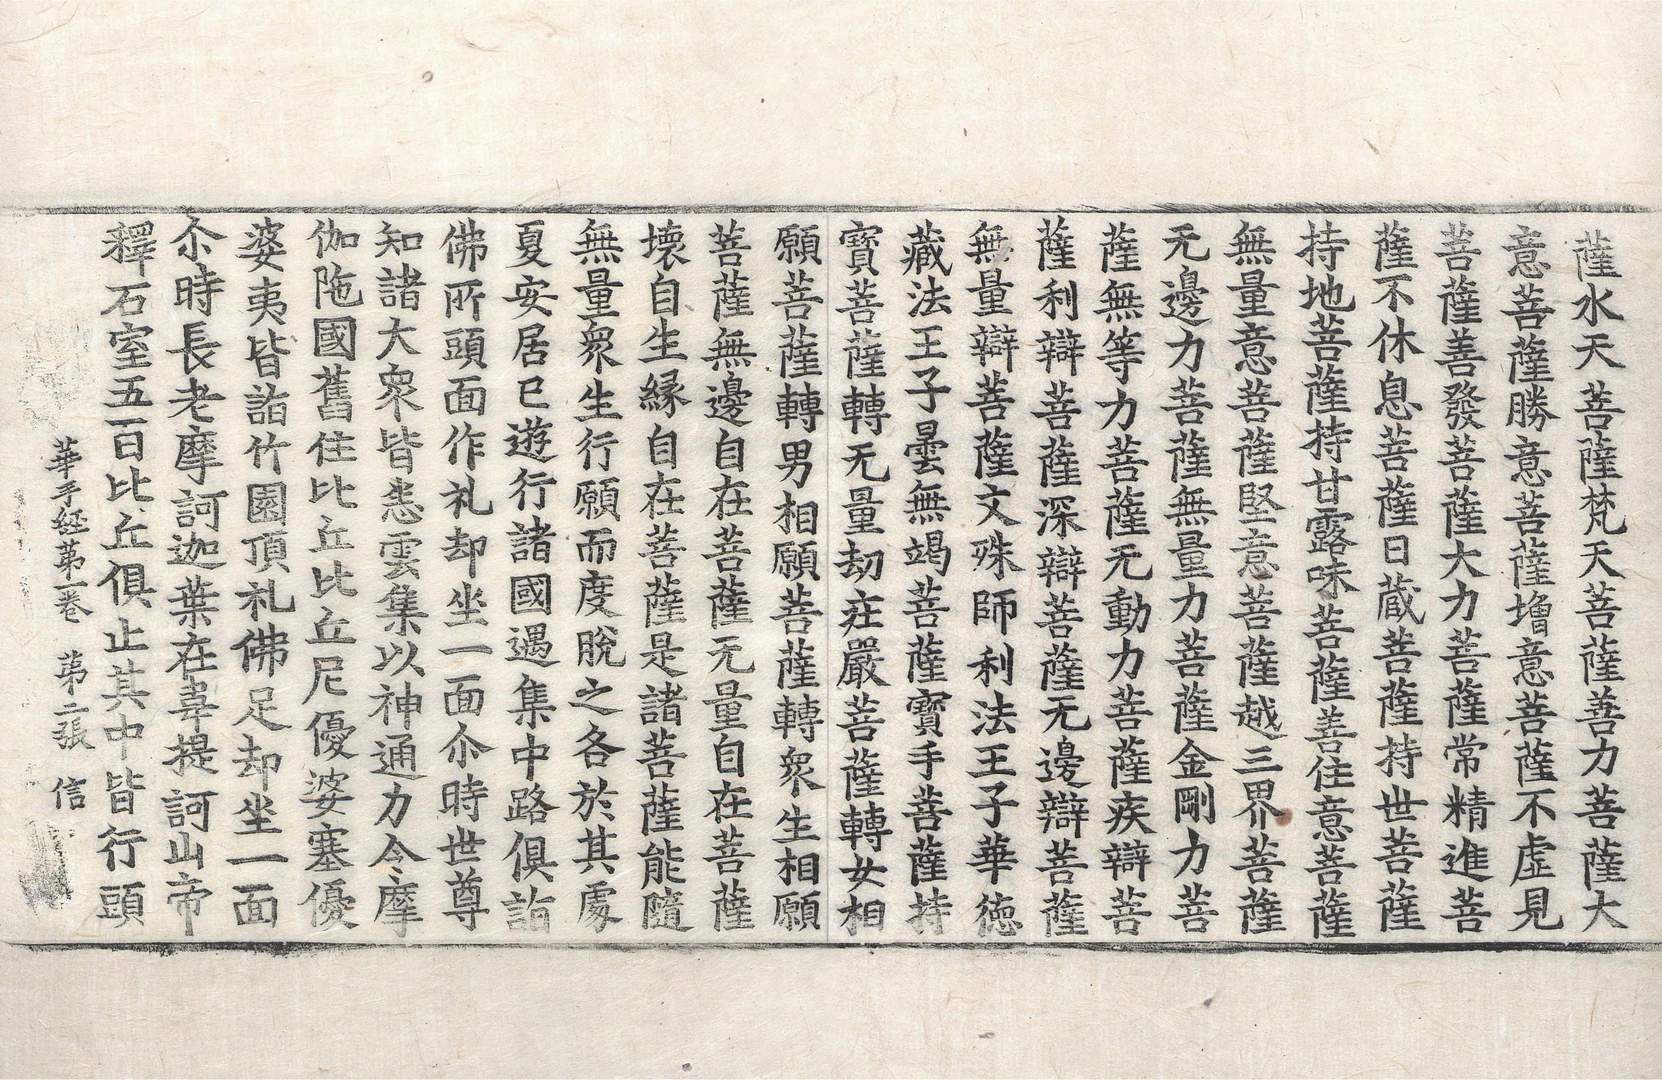 薩水天菩薩梵天菩薩善力菩薩大
意菩薩勝意菩薩增意菩薩不虛見
菩薩善發菩薩大力菩薩常精進菩
薩不休息菩薩日藏菩薩持世菩薩
持地菩薩持甘露味菩薩善住意菩薩
無量意菩薩堅意菩薩越三界菩薩
无邊力菩薩無量力菩薩金剛力菩
薩無等力菩薩无動力菩薩疾辯菩
薩利辯菩薩深辯菩薩无邊辯菩薩
無量辯菩薩文殊師利法王子華德
藏法王子曇無竭菩薩寶手菩薩持
寶菩薩轉无量劫庄嚴菩薩轉女相
願菩薩轉男相願菩薩轉衆生相願
菩薩無邊自在菩薩无量自在菩薩
壞自生緣自在菩薩是諸菩薩能隨
無量衆生行願而度脫之各於其處
夏安居已遊行諸國遇集中路俱詣
佛所頭面作礼却坐一面尒時世尊
知諸大衆皆悉雲集以神通力令摩
伽陁國舊住比丘比丘尼優婆塞優
婆夷皆詣竹園頂礼佛足却坐一面
尒時長老摩訶迦葉在韋提訶山帝
釋石室五百比丘俱止其中皆行頭
華手經第一卷　第二張　信